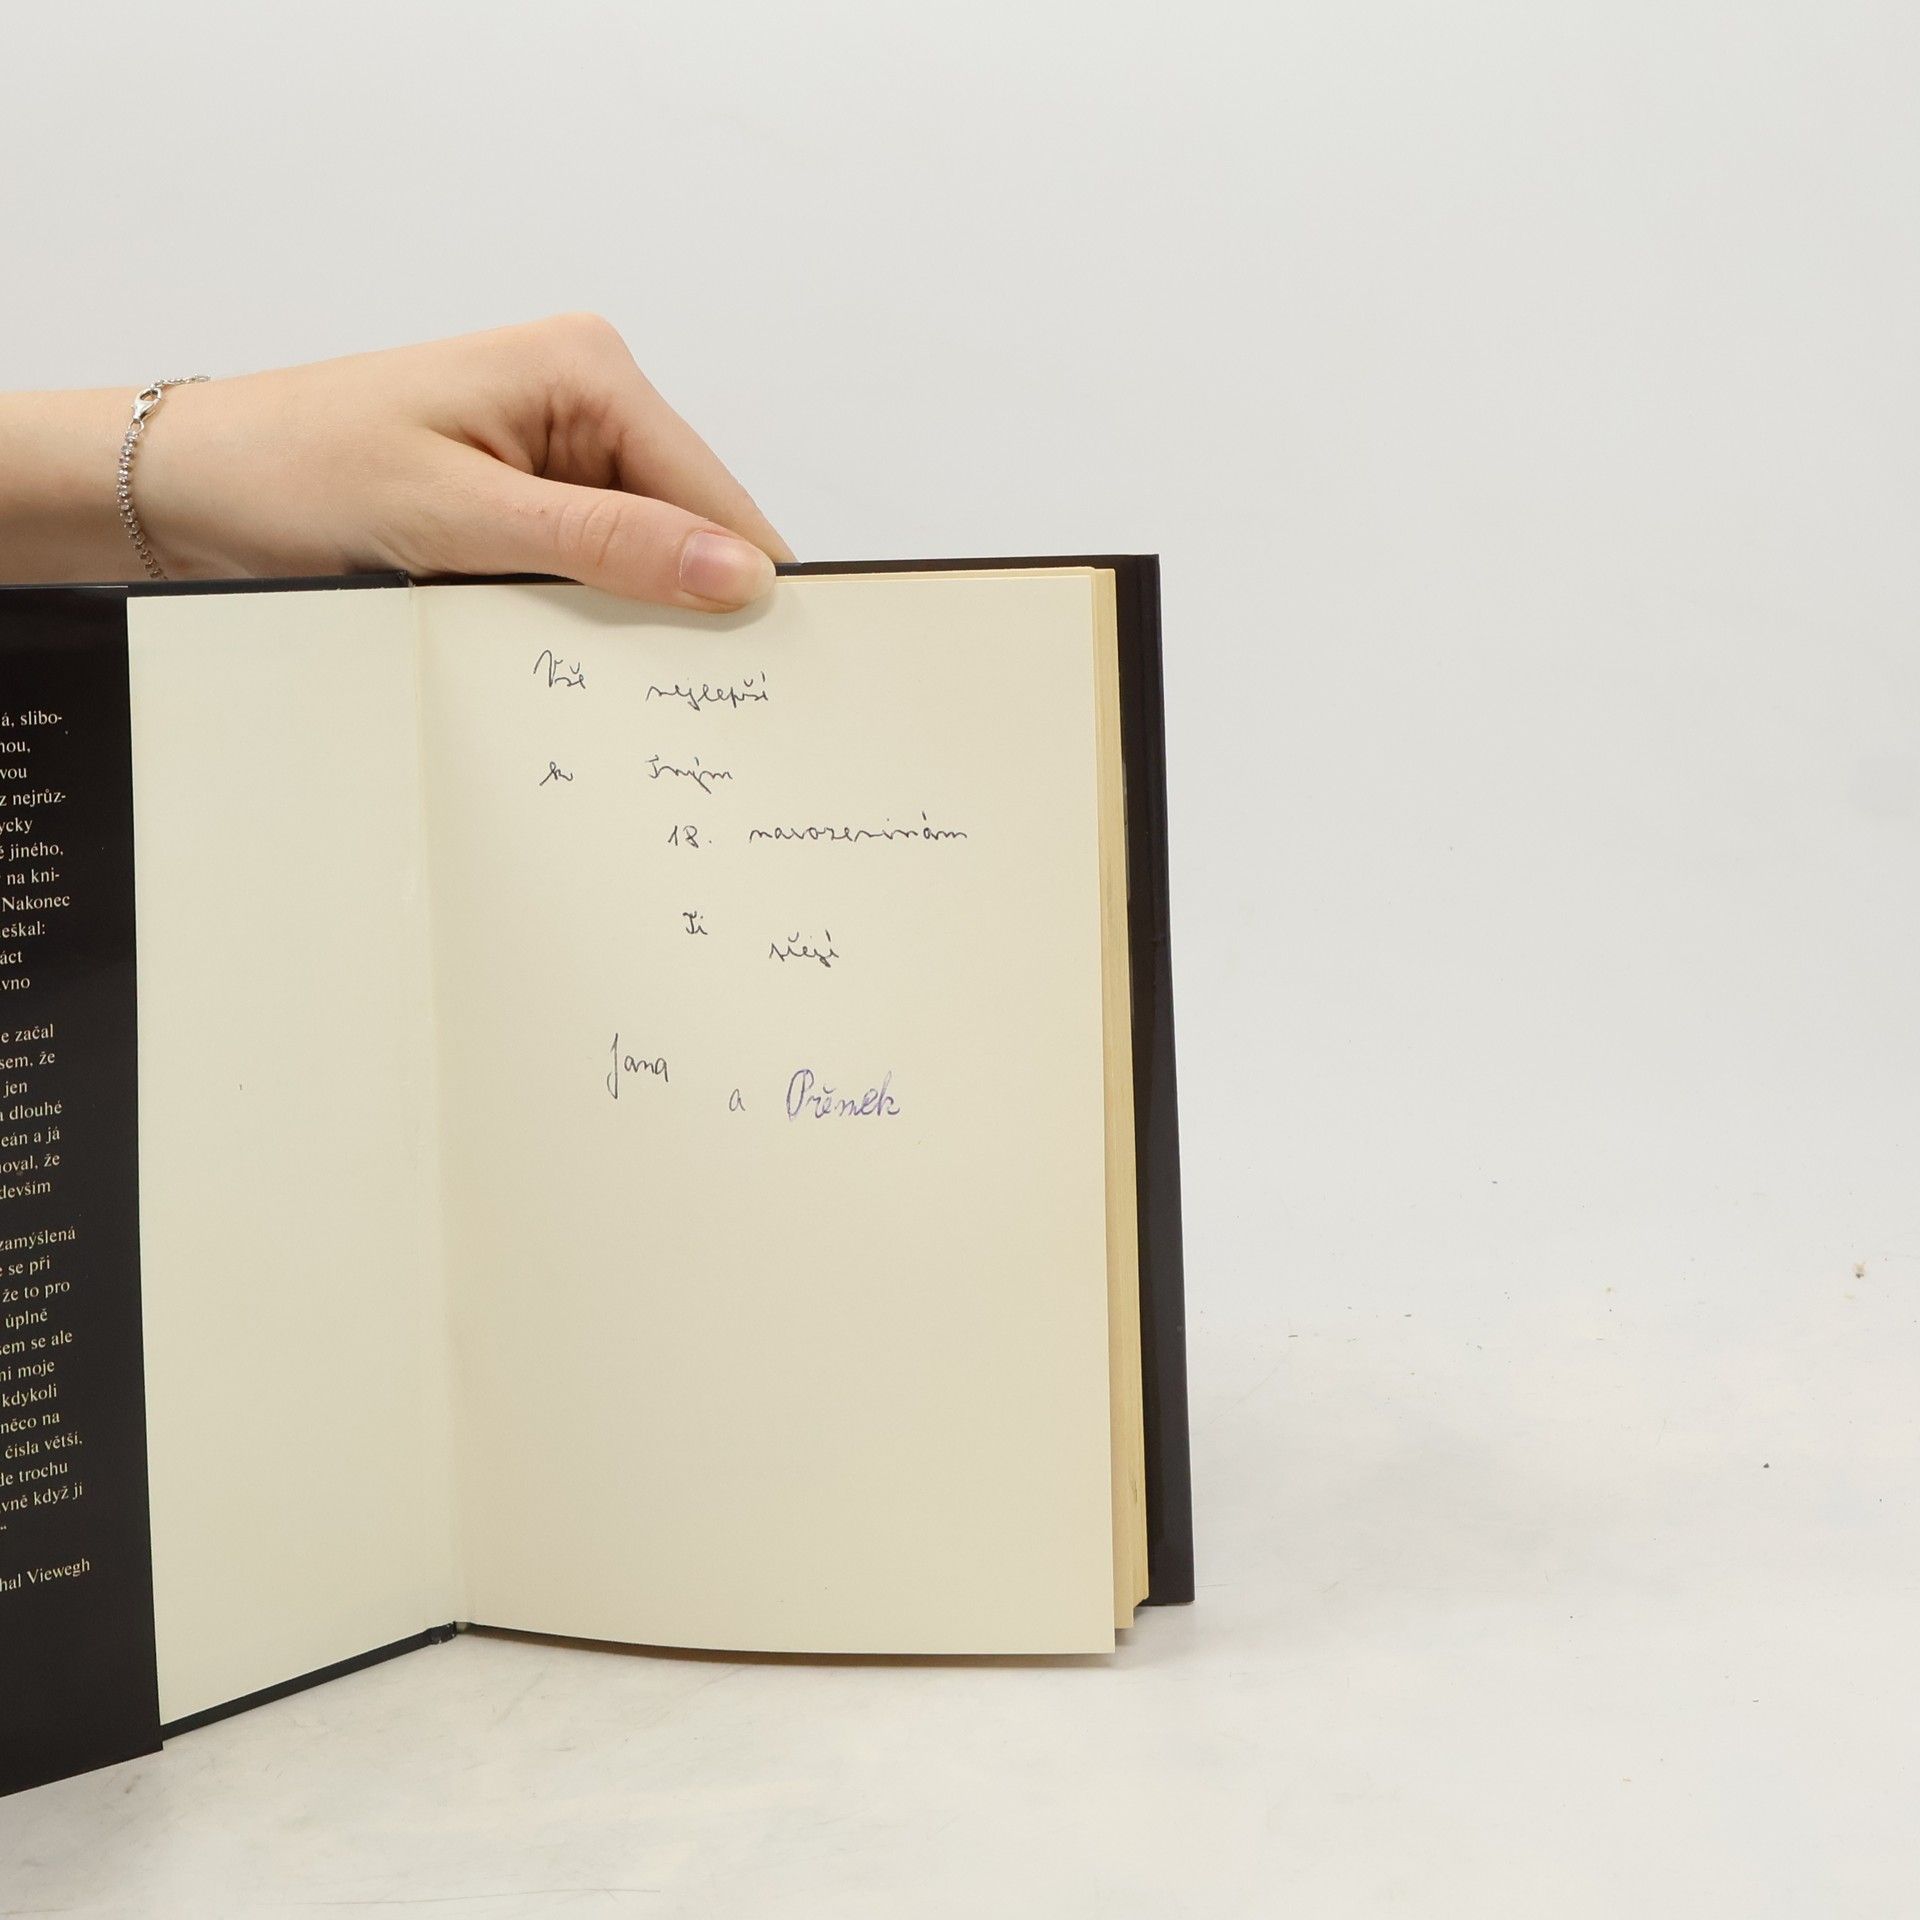 á, slibo-
nou,
vou
z nejrůz-
ycky
é jiného,
na kni-
Nakonec
eškal:
áct
vno
e začal
sem, že
jen
a dlouhé
eán a já
noval, že
devším
zamýšlená
e se při
že to pro
úplně
sem se ale
ni moje
kdykoli
něco na
čísla větší,
de trochu
vně když ji
“
hal Viewegh
Vše nejlepší
k Tvým
18. narozeninám
Ti
přejí
Jana
a Přemek